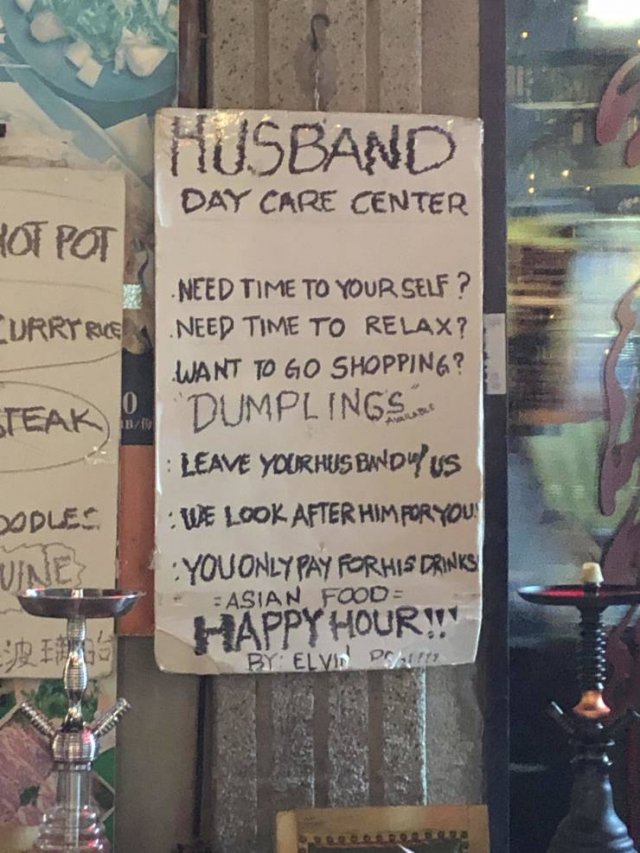 HUSBAND
DAY CARE CENTER
.NEED TIME TO YOURSELF?
.NEED TIME TO RELAX?
.WANT TO GO SHOPPING?
"DUMPLINGS"
AVAILABLE
: LEAVE YOUR HUSBAND W/ US
: WE LOOK AFTER HIM FOR YOU!
: YOU ONLY PAY FOR HIS DRINKS
=ASIAN FOOD=
HAPPY HOUR!!!
BY: ELVIN
HOT POT
CURRY RICE
STEAK
OODLES